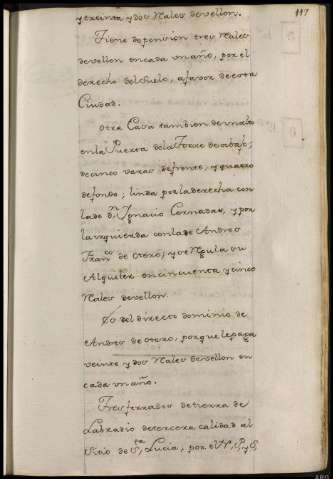 y treinta y dos Rales de vellon.
117
Tiene de pension tres Rales
de vellon en cada un año, por el
derecho del suelo, a favor de esta
Ciudad.
Otra Casa tambien de un alto
en la Puerta de la Torre de abajo;
de cinco varas de frente, y quatro
de fondo; linda por la derecha con
la de Dn. Ygnacio Cornadas, y por
la izquierda con la de Andres
Franco. de Otero; y se Regula su
Alquiler en cincuenta y cinco
Rales de vellon.
Es del directo dominio de
Andres de Otero, porque le paga
veinte y dos Rales de vellon en
cada un año.
Tres ferrados de tierra de
Labradio de tercera calidad al
Sitio de Sta. Lucia; por el N, P, y S,